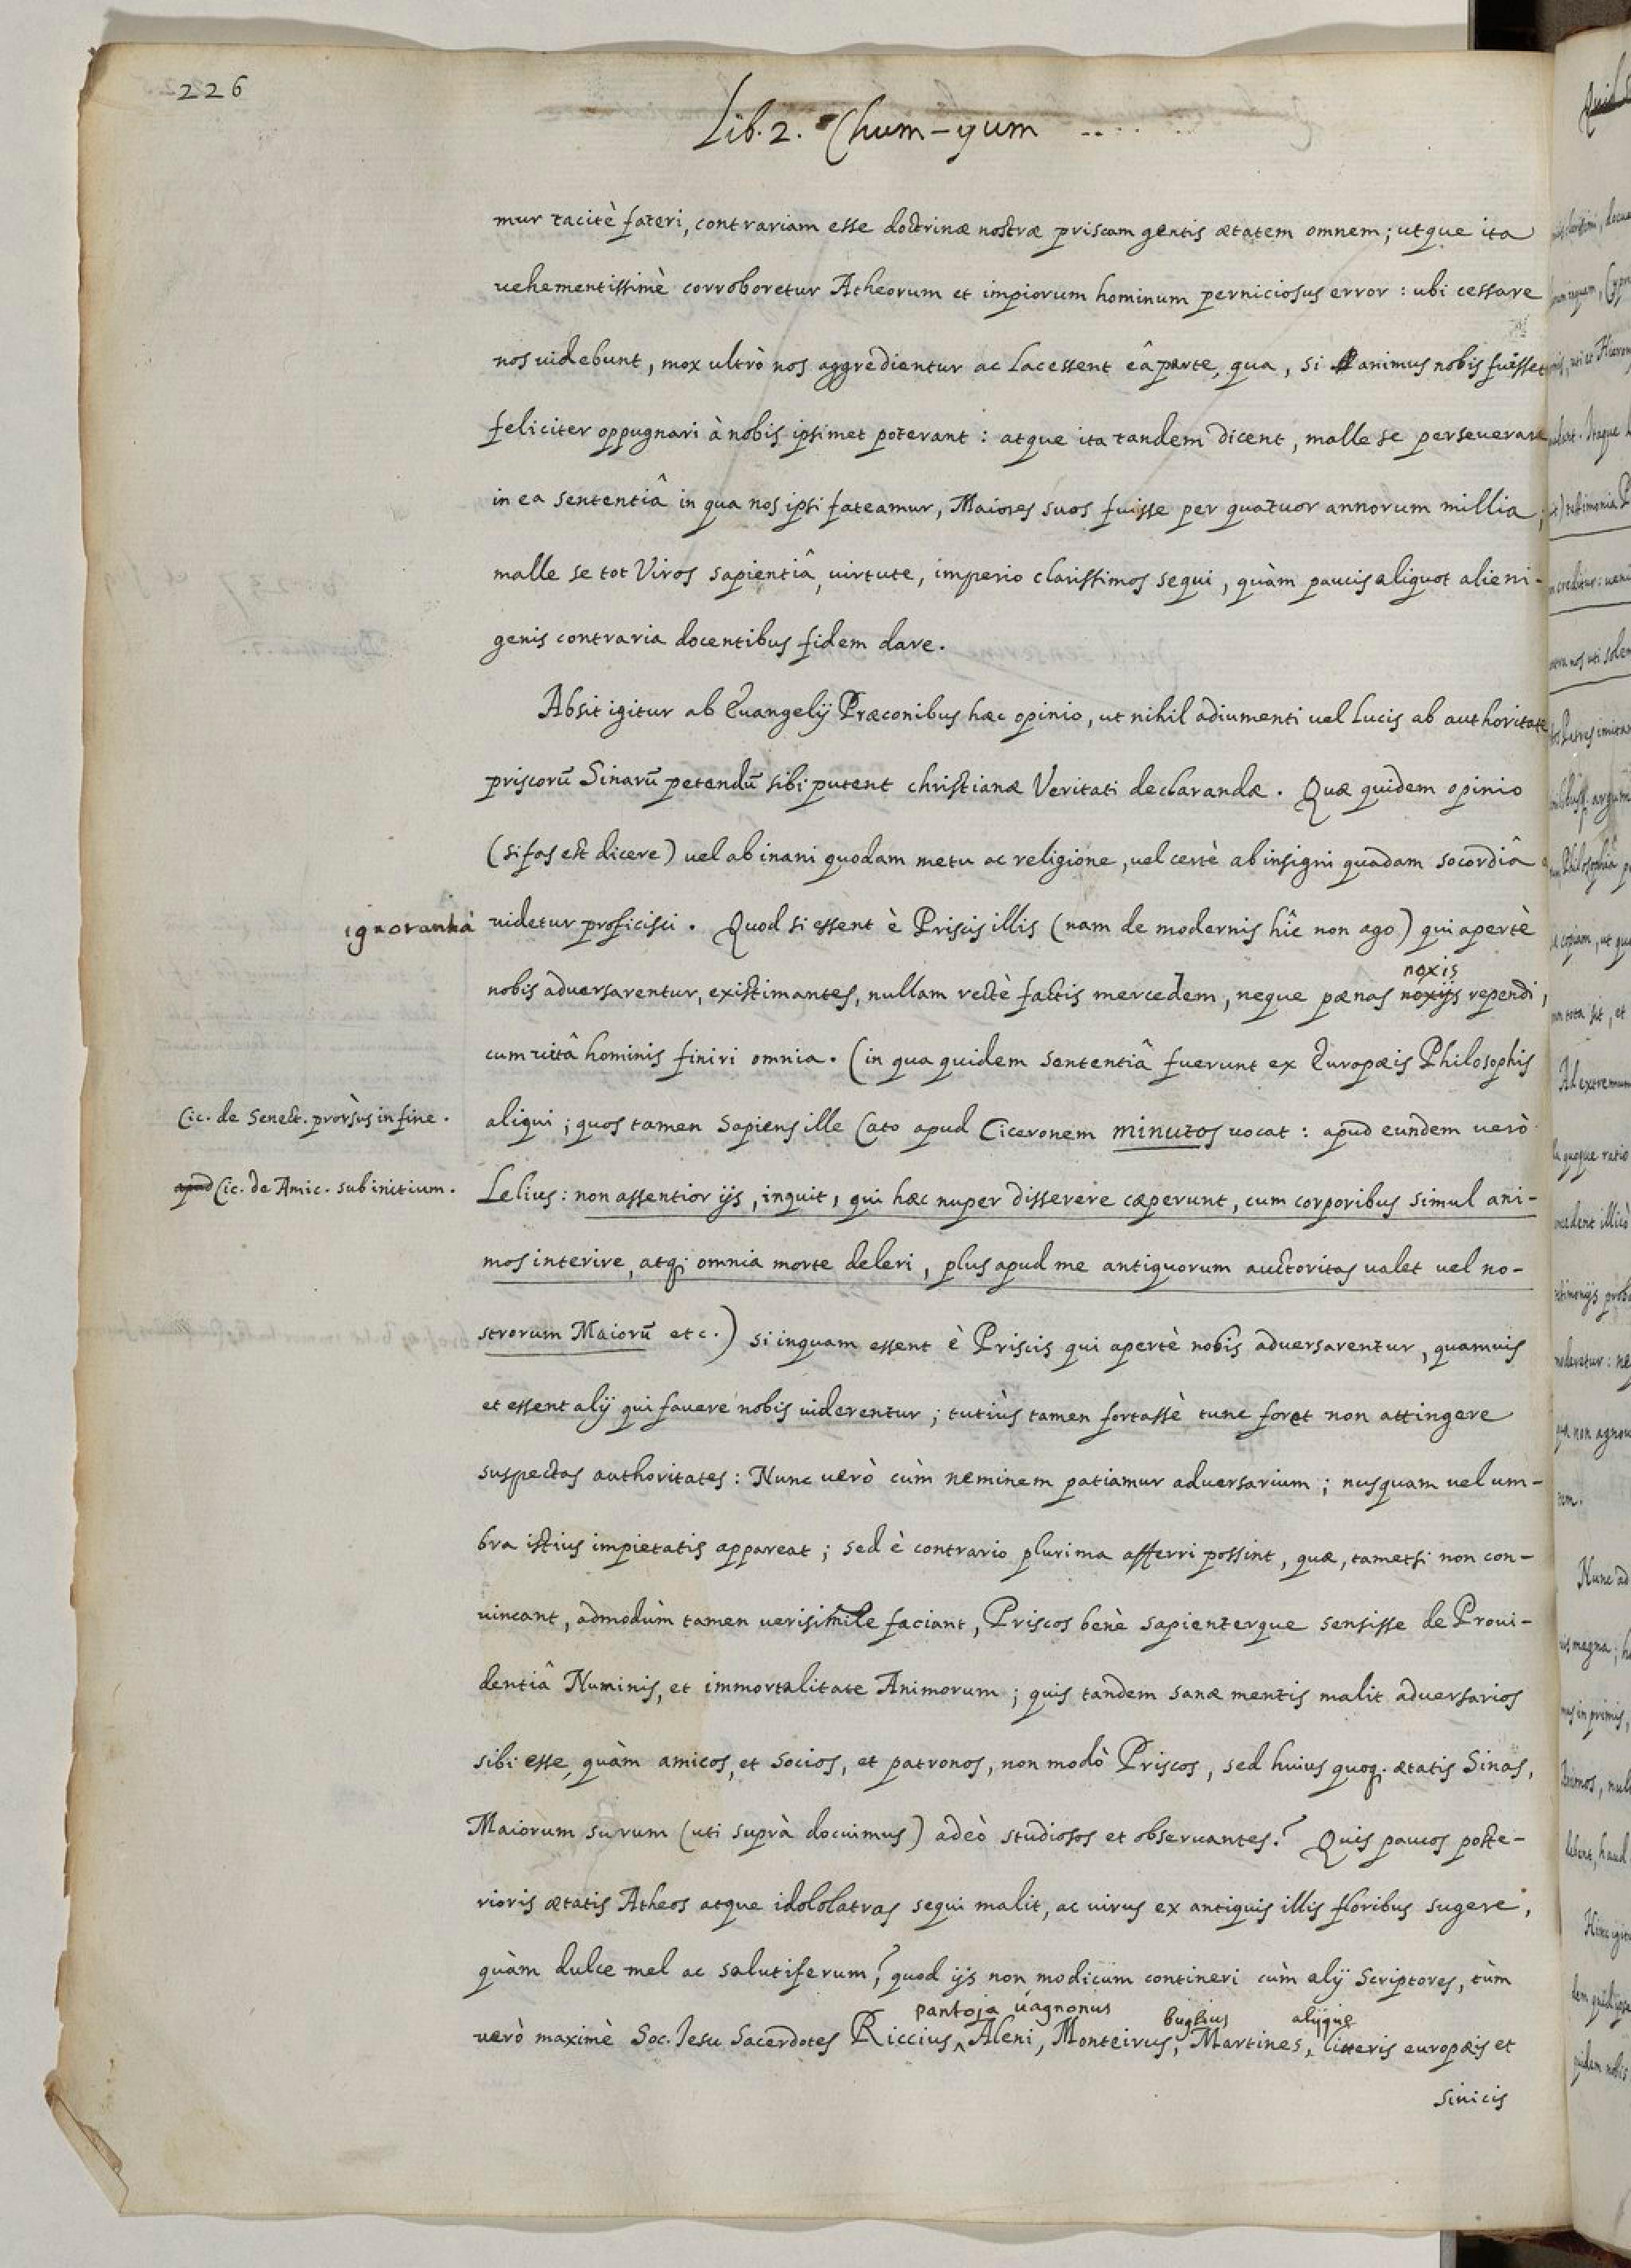 226
Lib. 2. Chum-yum
mur tacitè fateri, contrariam esse doctrinæ nostræ priscam gentis ætatem omnem; utque ita
uehementissimè corroboretur Atheorum et impiorum hominum perniciosus error: ubi cessare
nos uidebunt, mox ultrò nos aggredientur ac lacessent eâ parte, qua, si animus nobis fuisset
feliciter oppugnari à nobis ipsimet poterant: atque ita tandem dicent, malle se perseuerare
in ea sententiâ in qua nos ipsi fateamur, Maiores suos fuisse per quatuor annorum millia;
malle se tot Viros sapientiâ, uirtute, imperio clarissimos sequi, quàm paucis aliquot alieni-
genis contraria docentibus fidem dare.
Absit igitur ab Euangelij Præconibus hæc opinio, ut nihil adiumenti uel lucis ab authoritate
priscorū Sinarū petendū sibi putent christianæ Veritati declarandæ. Quæ quidem opinio
(si fas est dicere) uel ab inani quodam metu ac religione, uel certè ab insigni quadam socordiâ
ignorantiâ
uidetur proficisci. Quod si essent è Priscis illis (nam de modernis hîc non ago) qui apertè
noxis
nobis aduersarentur, existimantes, nullam rectè factis mercedem, neque pœnas noxijs rependi,
cum uitâ hominis finiri omnia. (in qua quidem sententiâ fuerunt ex Europæis Philosophis
Cic. de Senect. prorsùs in fine.
aliqui; quos tamen sapiens ille Cato apud Ciceronem minutos uocat: apud eundem uerò
apud Cic. de Amic. sub initium.
Lelius: non assentior ijs, inquit, qui hæc nuper disserere cæperunt, cum corporibus simul ani-
mos interire, atq; omnia morte deleri, plus apud me antiquorum auctoritas ualet uel no-
strorum Maiorū etc.) si inquam essent è Priscis qui apertè nobis aduersarentur, quamuis
et essent alij qui fauere nobis uiderentur; tutiùs tamen fortassè tunc foret non attingere
suspectas authoritates: Nunc uerò cùm neminem patiamur aduersarium; nusquam uel um-
bra istius impietatis appareat; sed è contrario plurima afferri possint, quæ, tametsi non con-
uincant, admodùm tamen uerisimile faciant, Priscos benè sapienterque sensisse de Proui-
dentiâ Numinis, et immortalitate Animorum; quis tandem sanæ mentis malit aduersarios
sibi esse, quàm amicos, et socios, et patronos, non modò Priscos, sed huius quoq; ætatis Sinas,
Maiorum suorum (uti suprà docuimus) adeò studiosos et obseruantes? Quis paucos poste-
rioris ætatis Atheos atque idololatras sequi malit, ac uirus ex antiquis illis floribus sugere,
quàm dulce mel ac salutiferum? quod ijs non modicùm contineri cùm alij Scriptores, tùm
pantoja uagnonus buglius alijque
uerò maximè Soc. Iesu Sacerdotes Riccius, Aleni, Monteirus, Martines, litteris europæis et
sinicis